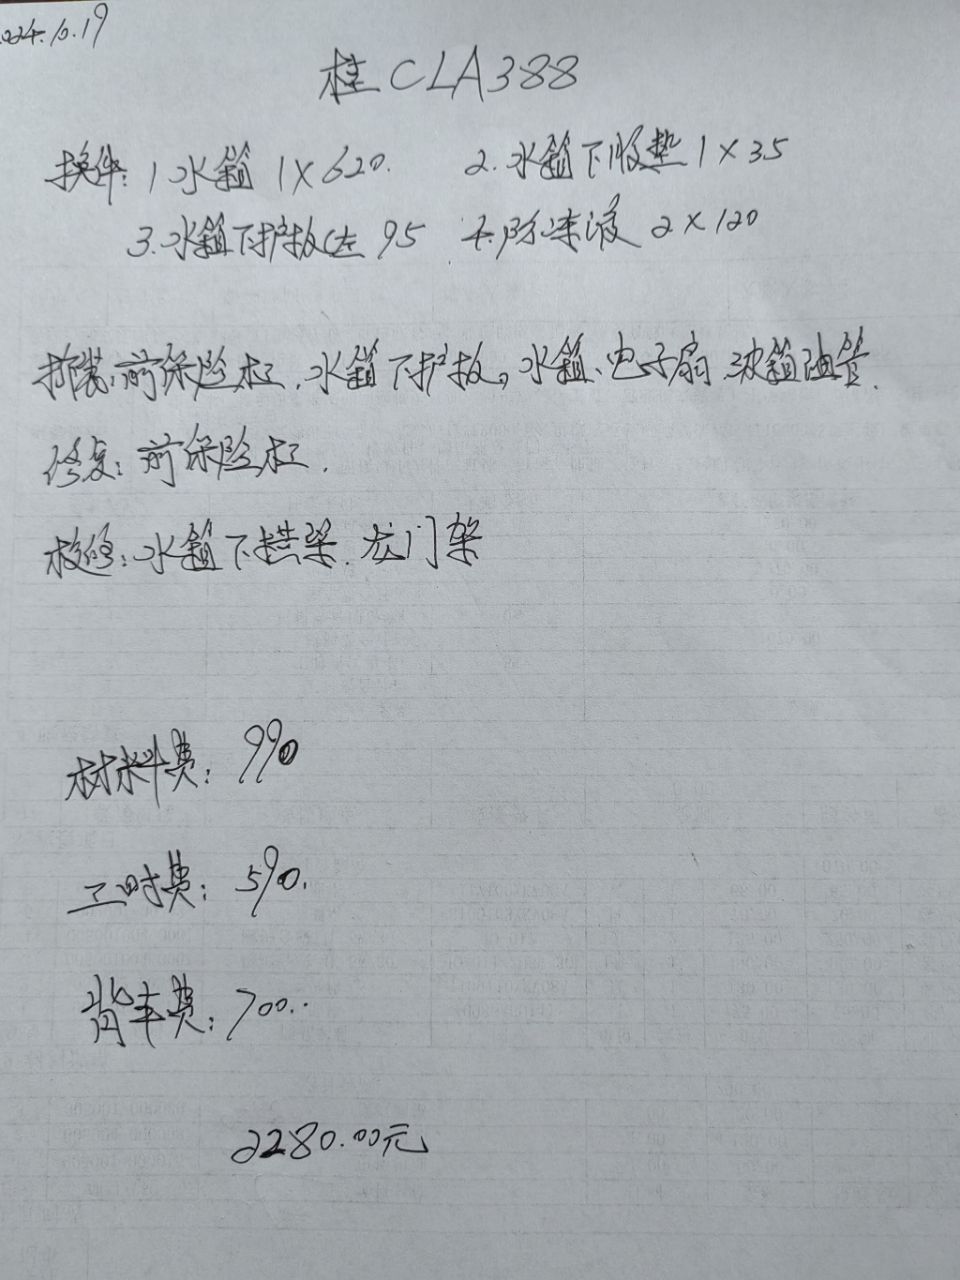 2024.10.19
桂CLA388
换件: 1 水箱 1×620. 2. 水箱下胶垫 1×35
3. 水箱下护板(左 95 4. 防冻液 2×120
拆装: 前保险杠. 水箱下护板, 水箱、电子扇 波箱油管.
修复: 前保险杠.
校修: 水箱下横梁. 龙门架
材料费: 990
工时费: 590.
背车费: 700..
2280.00元